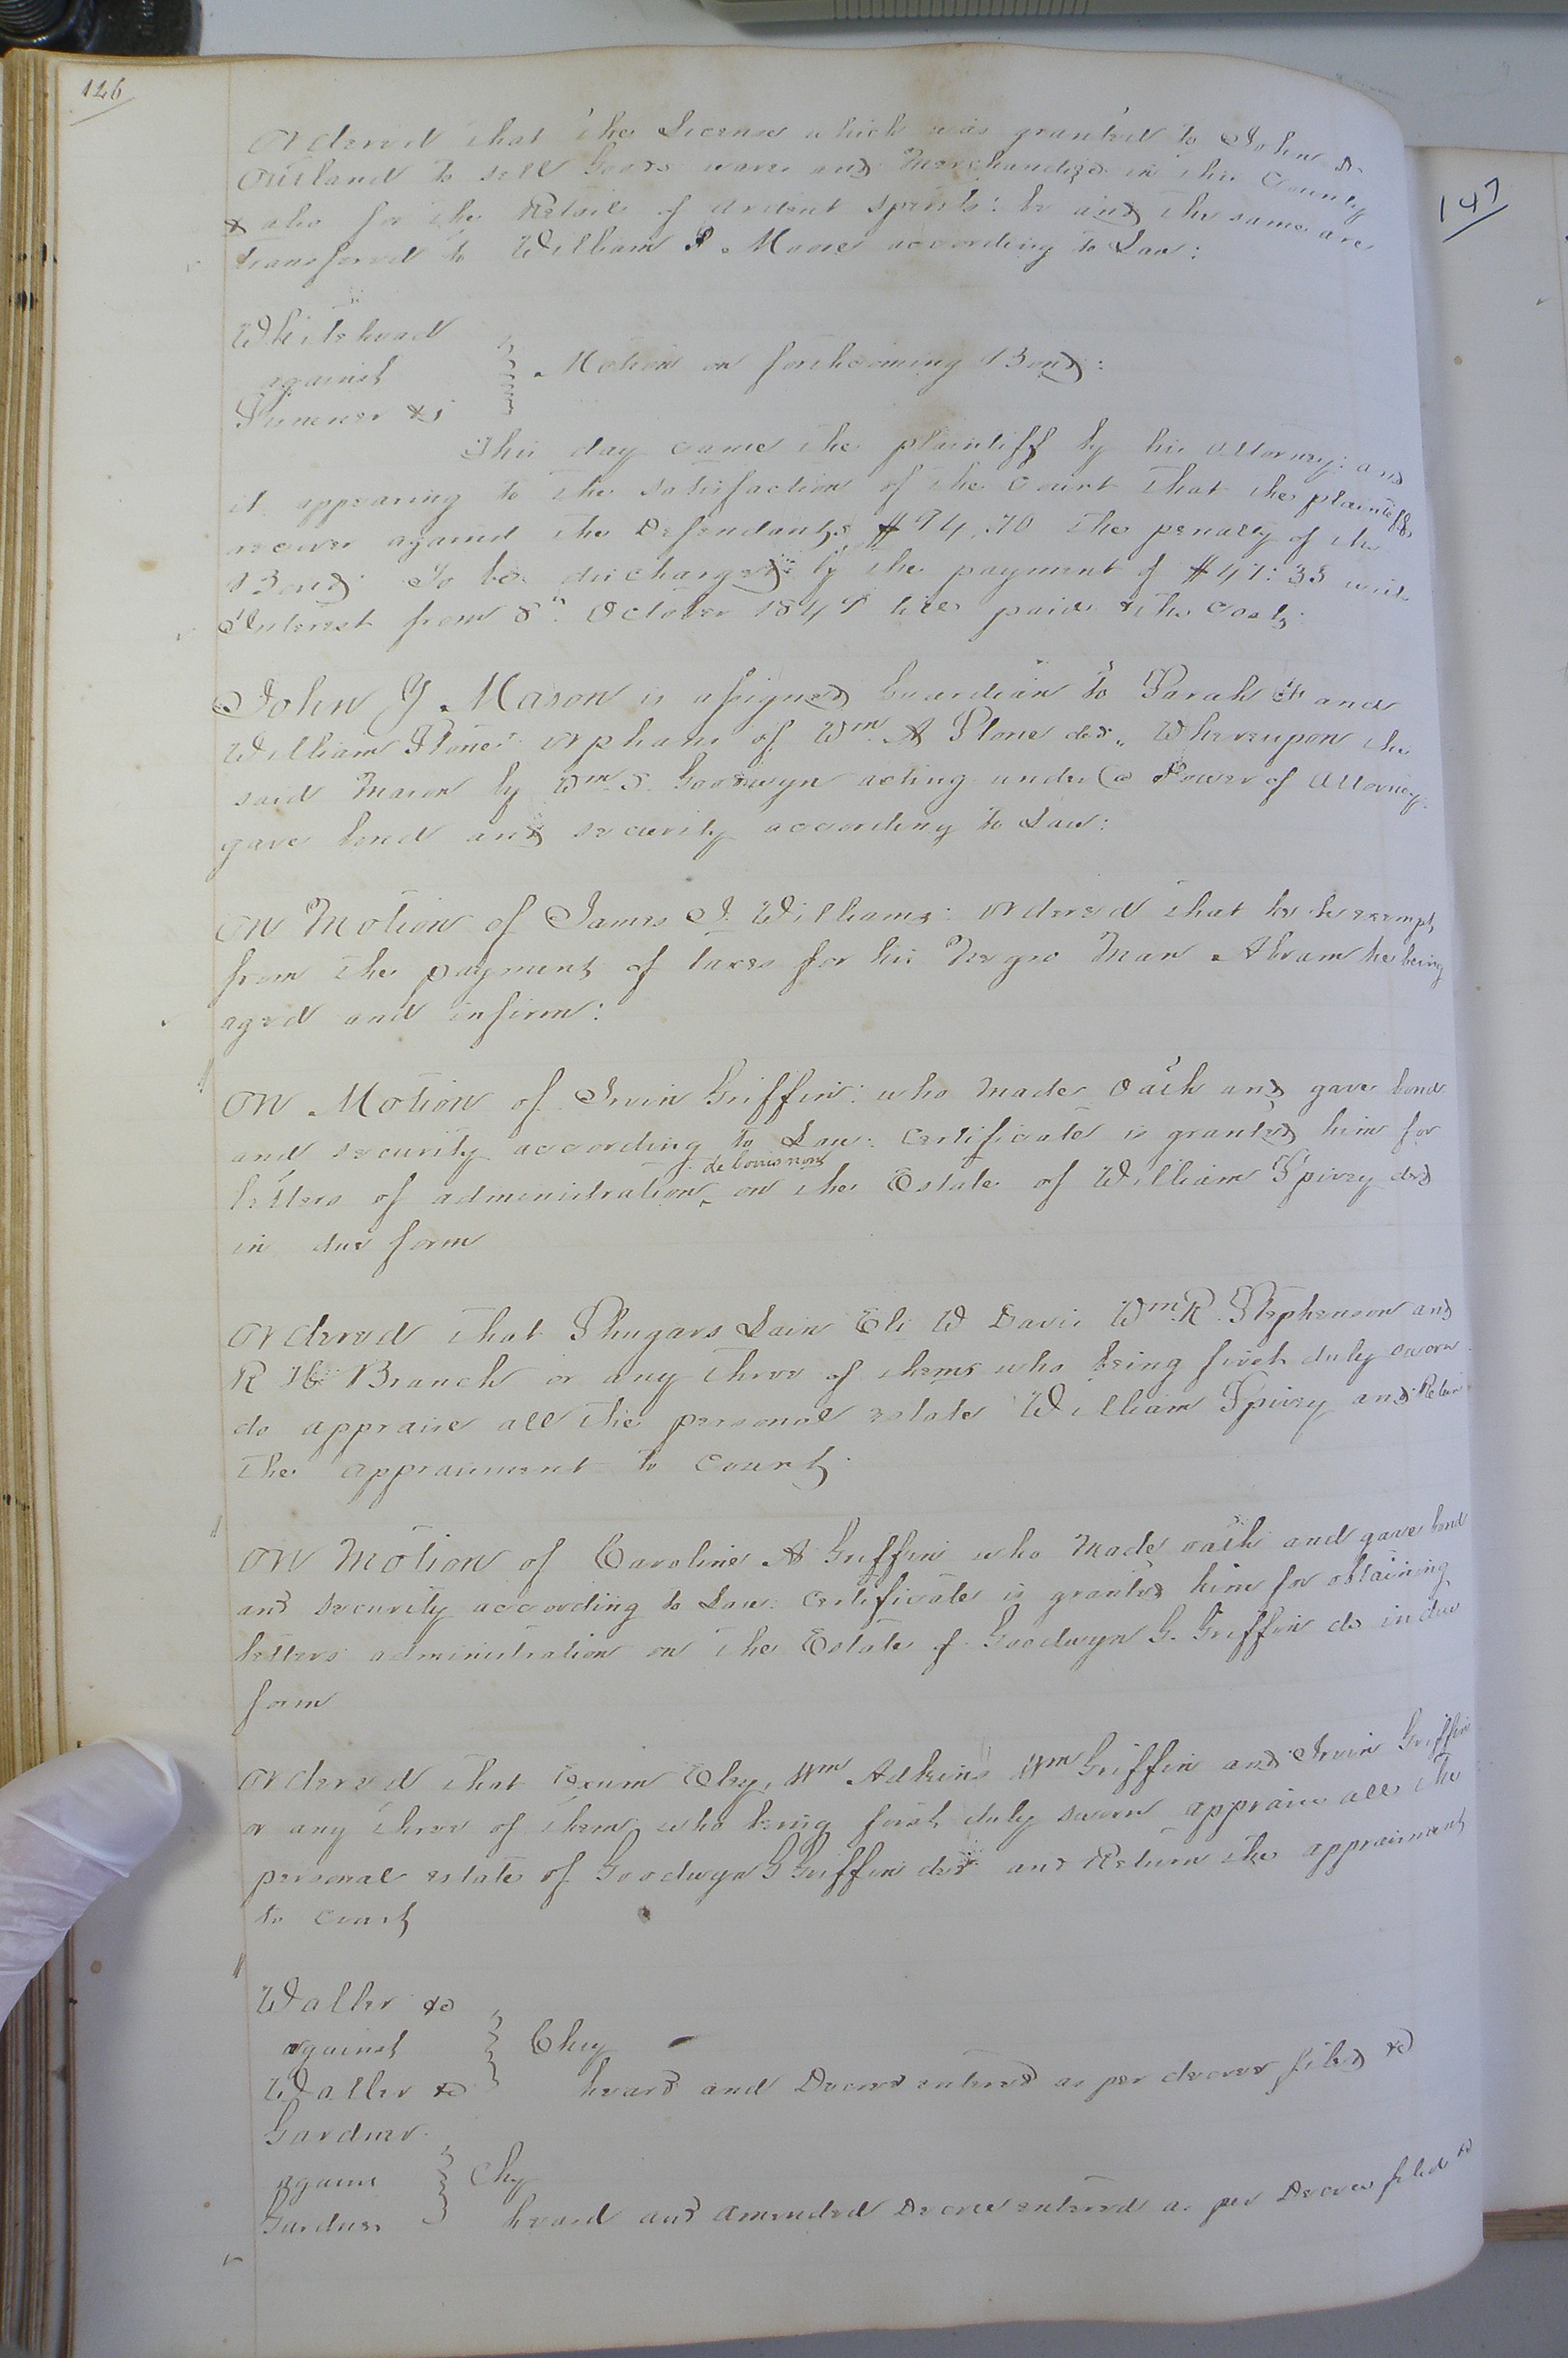 126
147
Ordered that the License which was granted to John D.
Outland to sell Goods wares and Merchandize in this County
& also for the Retail of ardent spirits: be and the same are
transferred to William P. Moore according to Law:
Whitehead
against
Sumner &c
Motion on forthcoming Bond:
This day came the plaintiff by his attorney: and
it appearing to the satisfaction of the Court that the plaintiffs
recover against the Defendants $94.70 the penalty of the
Bond: To be discharged by the payment of $47:35 with
Interest from 8th October 1849 till paid & the Costs:
John Y. Mason is assigned Guardian to Sarah and
William Stones orphans of Wm A Stone decd. Whereupon the
said Mason by Wm S. Goodwyn acting under a Power of Attorney
gave bond and security according to Law:
On Motion of James J. Williams: ordered that he be exempt
from the payment of taxes for his Negro Man Abram he being
aged and infirm:
On Motion of Irvin Griffin: who made Oath and gave bond
and security according to Law: certificate is granted him for
de bonis non
letters of administration ^ on the Estate of William Spivey decd
in due form
Ordered that Shugars Lain Eli W Davis Wm. R. Stephenson and
R H Branch or any three of them who being first duly sworn
do appraise all the personal estate William Spivey and Return
the appraisment to Court.
On Motion of Caroline A Griffin who Made oath and gave bond
and security according to Law: certificate is granted him for obtaining
letters administration on the Estate of Goodwyn G. Griffin de in due
form
Ordered that Exum Eley, Wm Adkins Wm Griffin and Irvin Griffin
or any three of them who being first duly sworn appraise all the
personal estate of Goodwyn G Griffin decd and Return the appraisment
to court
Waller &c
against
Waller &c
Chy
heard and Decree entered as per decree filed &c
Gardner
against
Gardner
Chy
heard and amended Decree entered as per Decree filed &c